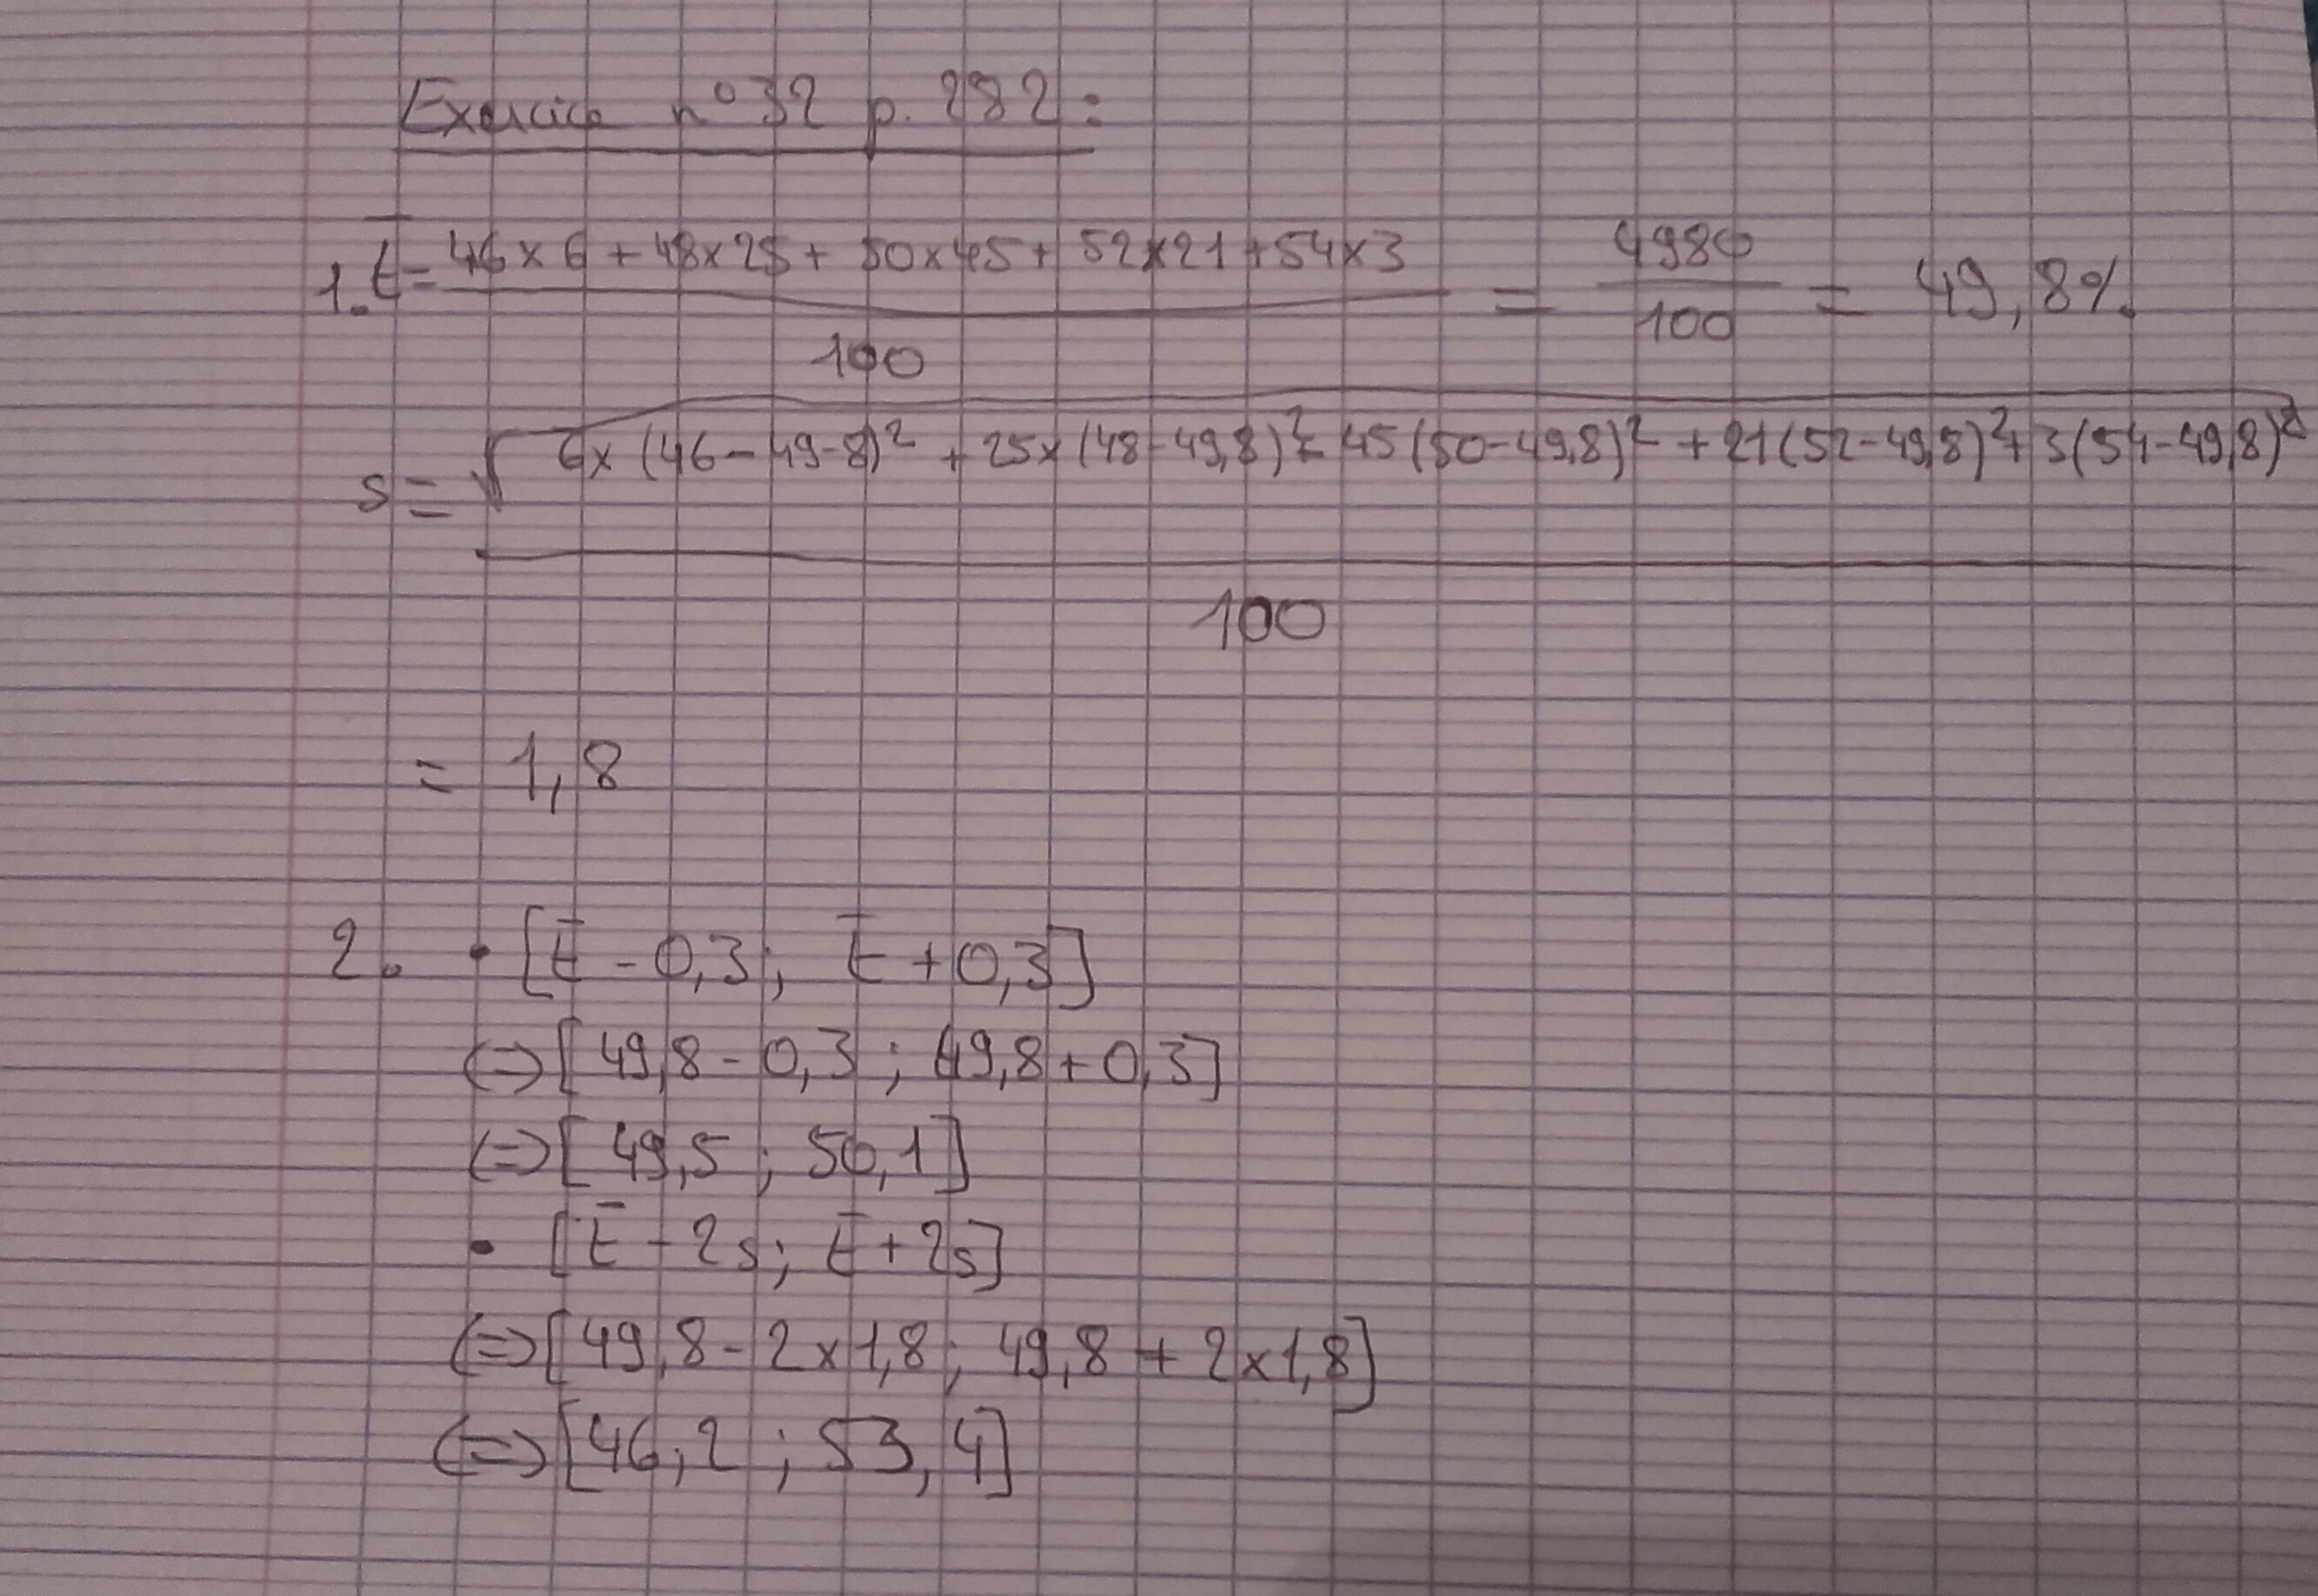 Exercice n°32 p. 282 :
1. t̄ = 46 x 6 + 48 x 25 + 50 x 45 + 52 x 21 + 54 x 3 / 100 = 4980 / 100 = 49,8%
s = √ 6x (46-49-8)² + 25x (48-49,8)² + 45 (50-49,8)² + 21 (52-49,8)² + 3 (54-49,8)² / 100
= 1,8
2. • [t̄ - 0,3 ; t̄ + 0,3]
(=) [49,8 - 0,3 ; 49,8 + 0,3]
(=) [49,5 ; 50,1]
• [t̄ - 2s ; t̄ + 2s]
(=) [49,8 - 2 x 1,8 ; 49,8 + 2 x 1,8]
(=) [46,2 ; 53,4]